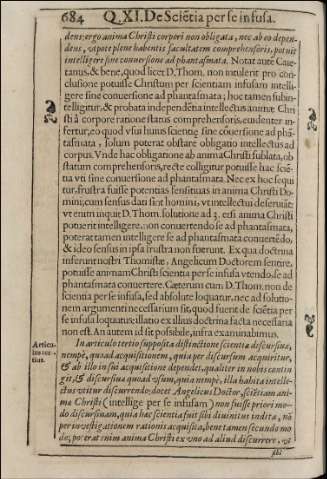 684 Q. XI. De Sciẽtia per se infusa.
dens: ergo anima Christi corpori non obligata, nec ab eo depen-
dens, vtpote plenè habentis facultatem comprehensoris, potuit
intelligere sine conuersione ad phantasmata. Notat autẽ Caie-
tanus, & bene, quod licet D. Thom. non intulerit pro con-
clusione potuisse Christum per scientiam infusam intelli-
gere sine conuersione ad phantasmata; hoc tamen subin-
telligitur, & probata independẽtia intellectus animæ Chri
sti à corpore ratione status comprehensoris, euidenter in-
fertur, eo quod vsui huius scientię sine cõuersione ad phã-
tasmata, solum poterat obstare obligatio intellectus ad
corpus. Vnde hac obligatione ab anima Christi sublata, ob
statum comprehensoris, recte colligitur potuisse hac sciẽ-
tia vti sine conuersione ad phantasmata. Nec ex hoc sequi
tur, frustra fuisse potentias sensitiuas in anima Christi Do-
mini, cum sensus dati sint homini, vt intellectui deseruiãt:
vt enim inquit D. Thom. solutione ad 3. etsi anima Christi
potuerit intelligere, non conuertendo se ad phantasmata,
poterat tamen intelligere se ad phantasmata conuertẽdo,
& ideo sensus in ipsa frustra non fuerunt. Ex qua doctrina
inferunt nostri Thomistæ, Angelicum Doctorem sentire,
potuisse animam Christi scientia per se infusa vtendo se ad
phantasmata conuertere. Cæterum cum D. Thom. non de
scientia per se infusa, sed absolute loquatur, nec ad solutio-
nem argumenti necessarium sit, quod fuerit de sciẽtia per
se infusa loquutus: illatio ex illius doctrina facta necessaria
non est. An autem id sit possibile, infra examinabimus.
Articu-
lus ter-
tius.
In articulo tertio supposita distinctione scientiæ discursiuæ,
nempè, quoad acquisitionem, quia per discursum acquiritur,
& ab illo in sui acquisitione dependet, qualiter in nobis contin
git, & discursiua quoad vsum, quia nempè, illa habita intelle-
ctus vtitur discurrendo: docet Angelicus Doctor, sciẽtiam ani-
mæ Christi (intellige per se infusam) non fuisse priori mo-
do discursiuam, quia hæc scientia fuit sibi diuinitus indita, nõ
per inuestigationem rationis acquisita, bene tamen secundo mo
do; poterat enim anima Christi ex vno ad aliud discurrere, vt
sibi